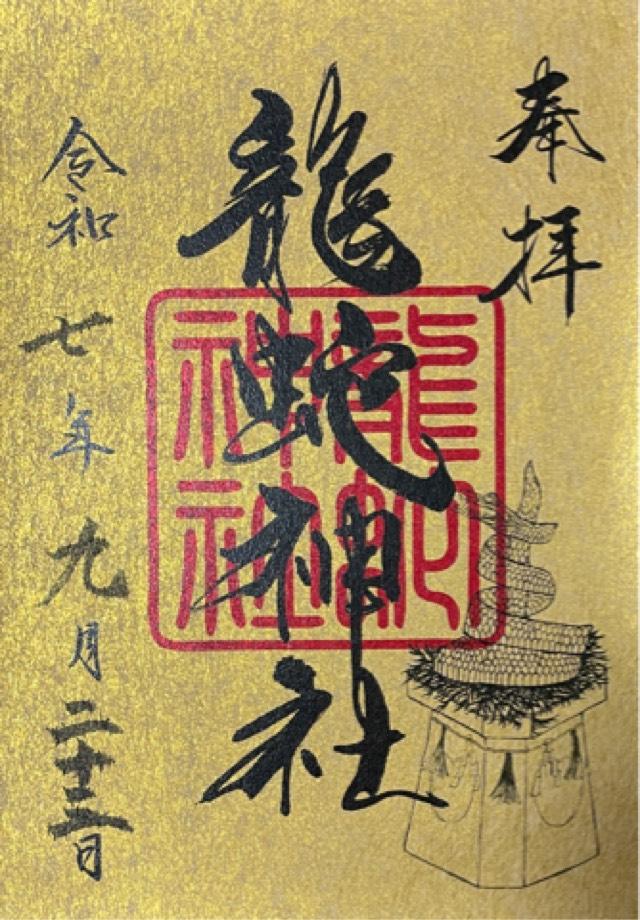 奉拝
龍蛇神社
龍蛇
神社
令和七年九月二十三日